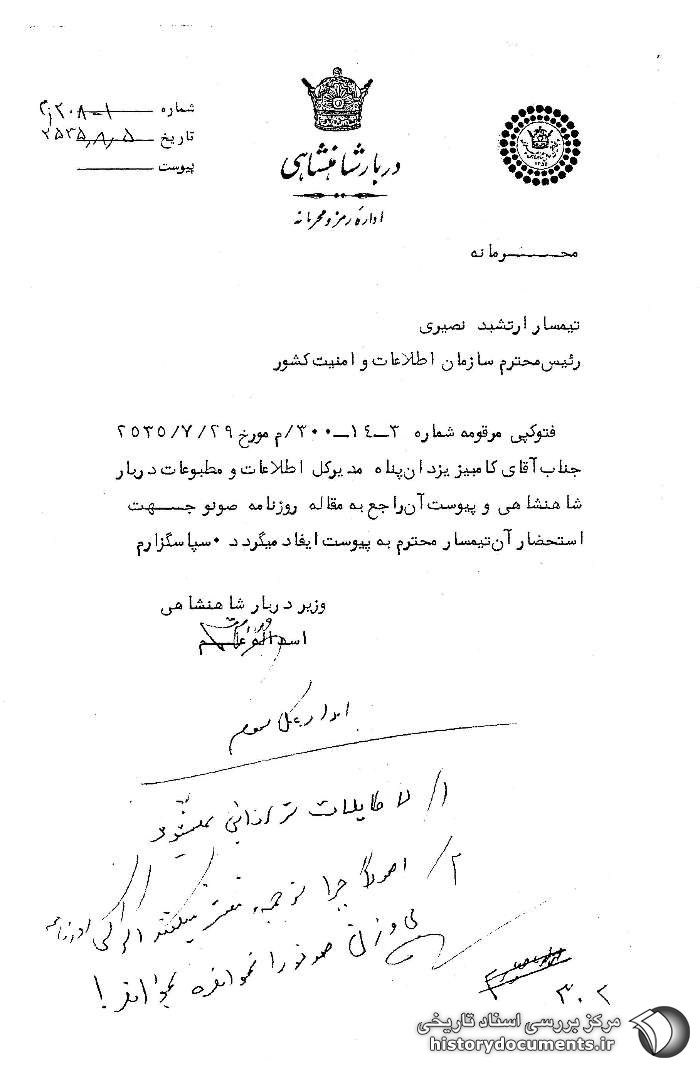 شماره ۱-۲۰۸م
تاریخ ۲۵۳۵٫۸٫۵
پیوست
دربار شاهنشاهی
اداره رمز و محرمانه
محرمانه
تیمسار ارتشبد نصیری
رئیس محترم سازمان اطلاعات و امنیت کشور
فتوکپی مرقومه شماره ۳-۱۴-۳۰۰/م مورخ ۲۵۳۵/۷/۲۹
جناب آقای کامبیز یزدان پناه مدیرکل اطلاعات و مطبوعات دربار
شاهنشاهی و پیوست آن راجع به مقاله روزنامه صونو جهت
استحضار آن تیمسار محترم به پیوست ایفاد میگردد ۰ سپاسگزارم
وزیر دربار شاهنشاهی
اسداله علم
اداره کل سوم
۱/
۲/ اصولاً چرا توجیه میکنند اگر کسی روزنامه
صونو را نخوانده بخواند!
۳۰۲
مرکز بررسی اسناد تاریخی
historydocuments.ir